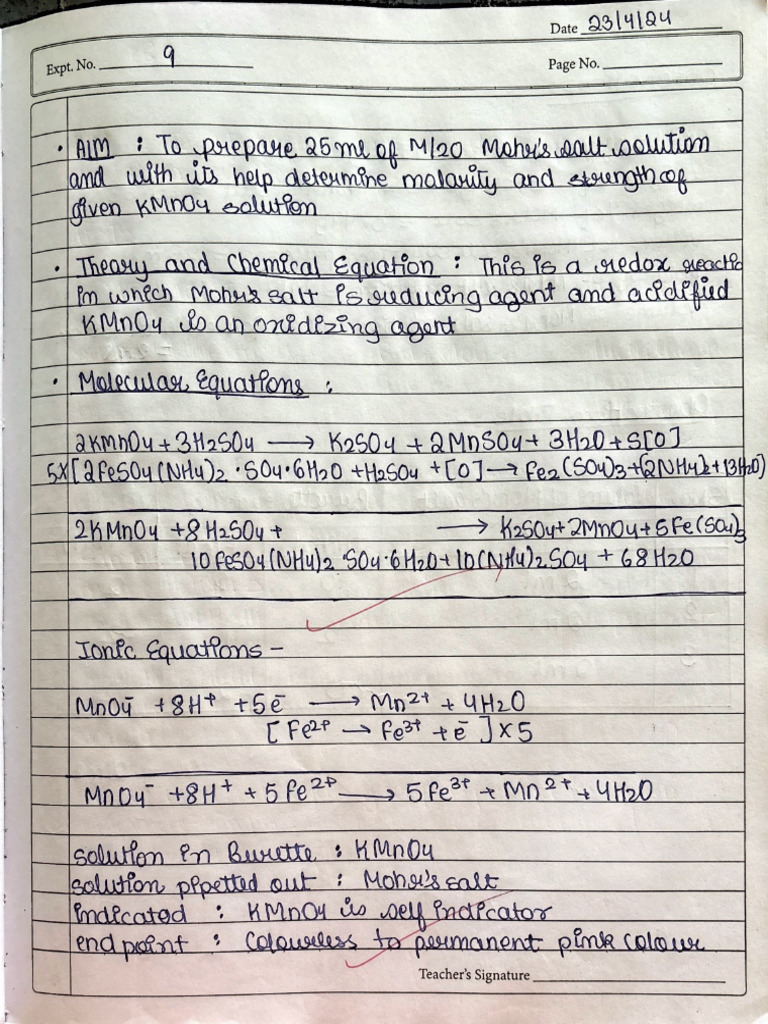 Date 23/4/24
Expt. No. 9
Page No.
• AIM : To prepare 25ml of M/20 Mohr's salt solution
and with its help determine molarity and strength of
given KMnO4 solution
• Theory and Chemical Equation : This is a redox reactio
in which Mohr's salt is reducing agent and acidified
KMnO4 is an oxidizing agent
• Molecular Equations :
2KMnO4 + 3H2SO4 ⟶ K2SO4 + 2MnSO4 + 3H2O + 5[O]
5x[2FeSO4(NH4)2 · SO4·6H2O + H2SO4 + [O] → Fe2(SO4)3 + (2NH4)2 + 13H2O]
2KMnO4 + 8H2SO4 + ⟶ K2SO4+2MnO4+5Fe(SO4)3
10FeSO4(NH4)2 SO4·6H2O + 10(NH4)2SO4 + 68H2O
Ionic Equations -
MnO4⁻ + 8H⁺ + 5e⁻ ⟶ Mn²⁺ + 4H2O
[Fe²⁺ → Fe³⁺ + e⁻] x 5
MnO4⁻ + 8H⁺ + 5Fe²⁺ ⟶ 5Fe³⁺ + Mn²⁺ + 4H2O
solution in Burette : KMnO4
solution pipetted out : Mohr's salt
indicated : KMnO4 is self indicator
end point : Colourless to permanent pink colour
Teacher's Signature